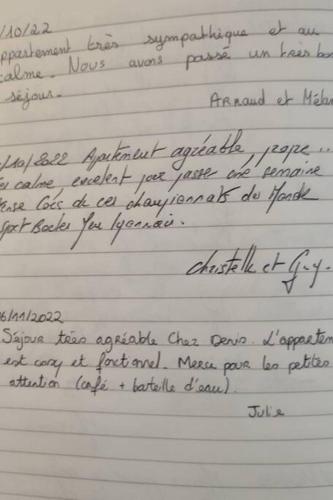 /10/22
ppartement très sympathique et au
calme. Nous avons passé un très bon
séjour.
Arnaud et Mélan
/10/2022 Apartement agréable, pope..
calme, excelent pour passer une semaine
lors de ces championnats du Monde
Sport Boules Lyonnais.
Christelle et Guy.
6/11/2022
Séjour très agréable chez Denis. L'appartem
est cosy et fonctionnel. Merci pour les petites
attention (café + bouteille d'eau).
Julie